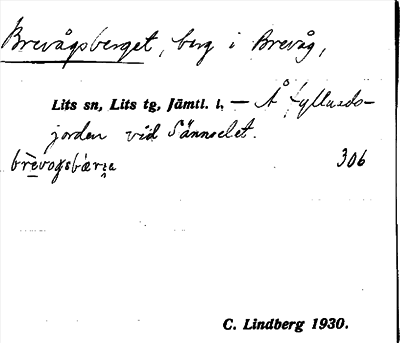 Brevågsberget, berg i Brevåg,
Lits sn, Lits tg, Jämtl. l. — Å Fyllnads-
jorden vid Sännselet.
brevogsbærje 306
C. Lindberg 1930.